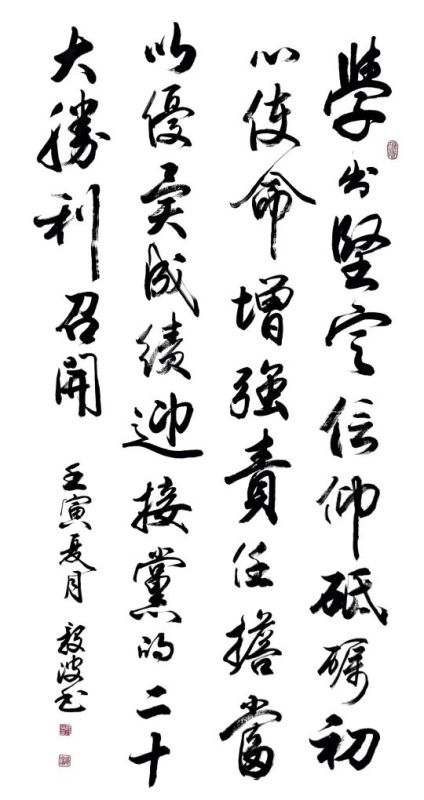 學出堅定信仰砥礪初
心使命增強責任擔當
以優異成績迎接黨的二十
大勝利召開
壬寅夏月 毅波书